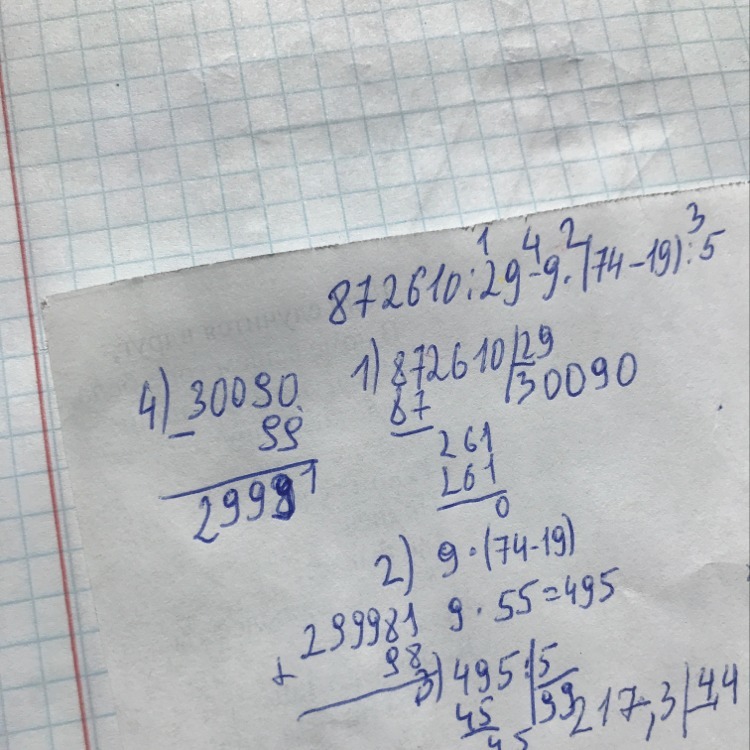 1 4 2 3
872610:29-9·(74-19):5
1) 872610|29
87 30090
261
261
0
4) 30090
- 99
29991
2) 9·(74-19)
9·55=495
299981
+ 98
3) 495:5
45 99
45
217,3|44